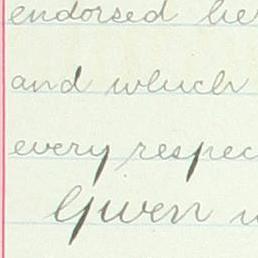 endorsed he
and which
every respec
Given